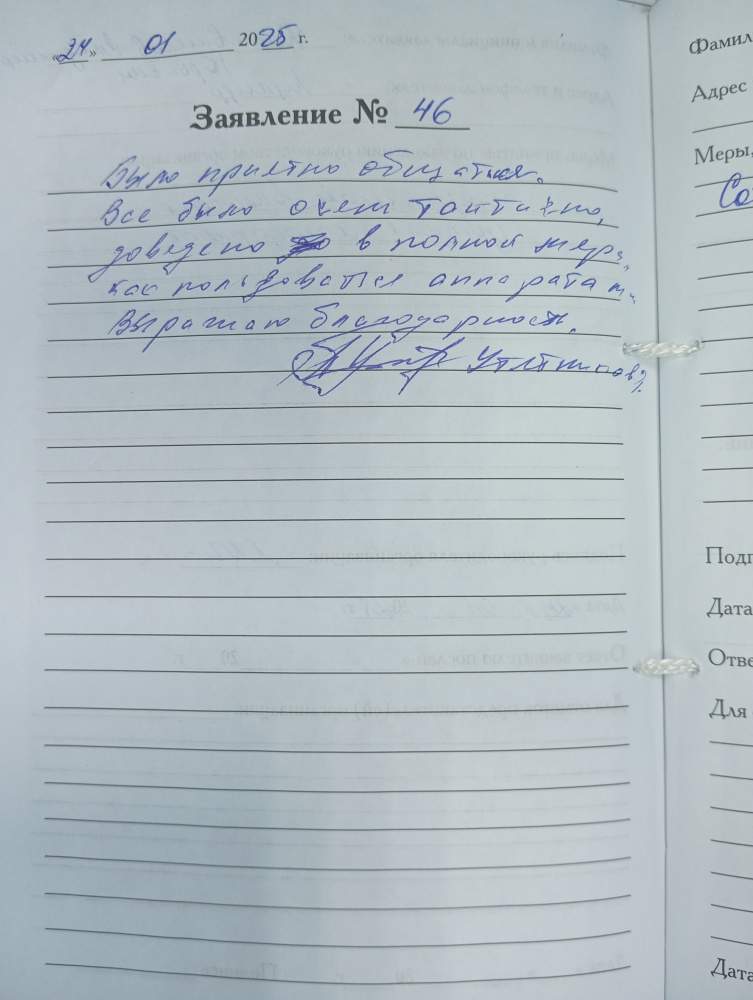 «24» 01 2025 г.
Заявление № 46
Было приятно общаться.
Все было очен тактично,
доведено в полной мере,
как пользоваться аппаратами.
Выражаю благодарность.
Фамил
Адрес
Меры,
Со
Подп
Дата
Отве
Для
Дата